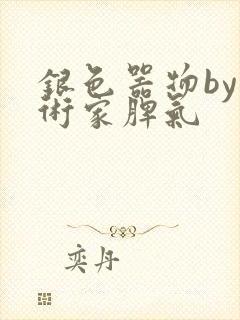 銀色器物by
術家脾氣
奕丹